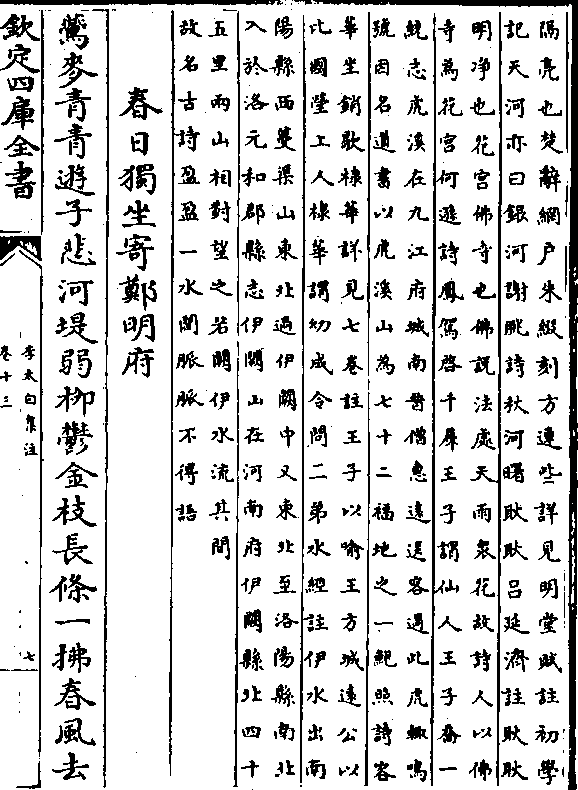 隔亮也楚辭網户朱綴刻方連些詳見明堂賦註初學
記天河亦曰銀河謝朓詩秋河曙耿耿吕延濟註耿耿
明净也花宫佛寺也佛說法處天雨衆花故詩人以佛
寺為花宫何遜詩鳳駕啓千羣王子謂仙人王子喬一
統志虎溪在九江府城南晉僧惠逺送客過此虎輒鳴
號因名道書以虎溪山為七十二福地之一鮑照詩客
華坐銷歇棣華詳見七卷註王子以喻王方城逺公以
比國瑩上人棣華謂幼成令問二弟水經註伊水出南
陽縣西蔓渠山東北過伊闕中又東北至洛陽縣南北
入於洛元和郡縣志伊闕山在河南府伊闕縣北四十
五里兩山相對望之若闕伊水流其間
故名古詩盈盈一水間脈脈不得語
春日獨坐寄鄭明府
鷰麥青青遊子悲河堤弱柳鬱金枝長條一拂春風去
欽定四庫全書
李太白集注
卷十三
七